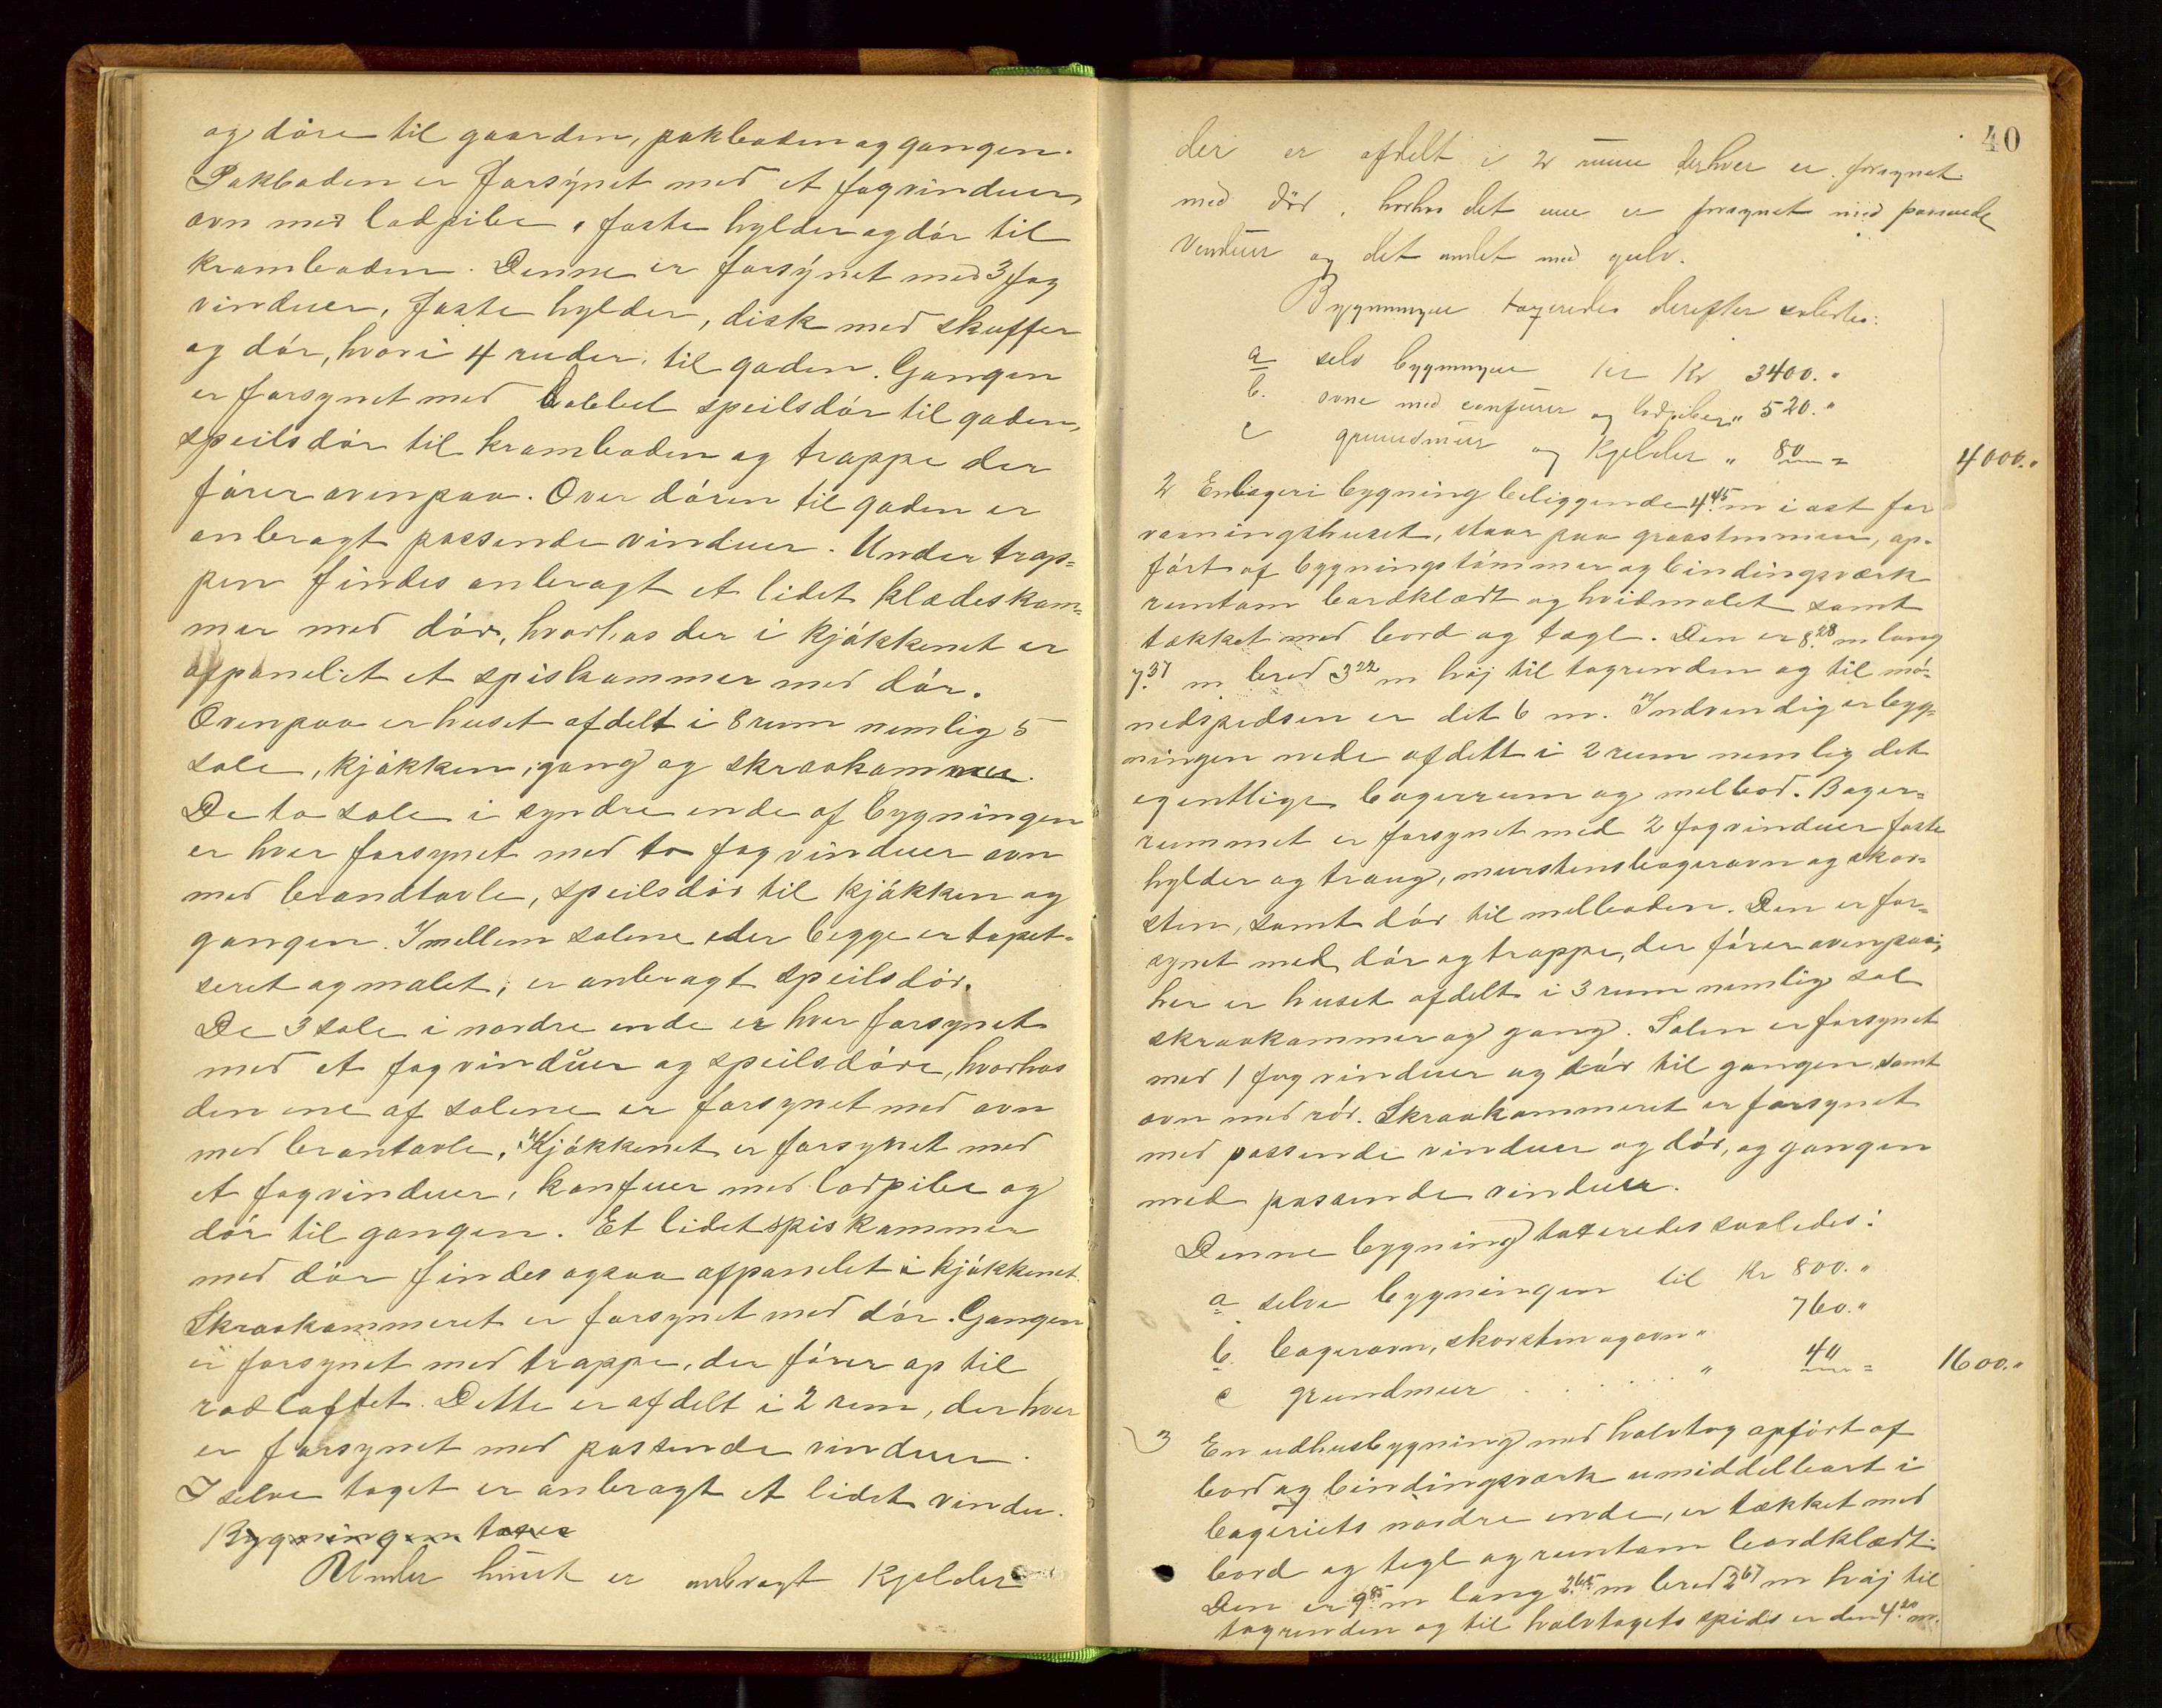 og döre til gaarden, pakboden og gangen.
Pakboden er forsýnet med et fag vinduer,
ovn med ladpibe, faste hylder og dör til
kramboden. Denne er forsýnet med 3 fag
vinduer, faste hylder, disk med skuffer
og dör, hvori 4 ruder, til gaden. Gangen
er forsynet med Dobbel speilsdör til gaden,
speilsdör til kramboden og trappe der
förer ovenpaa. Over dören til gaden er
anbragt passende vinduer. Under trap=
pen findes anbragt et lidet klædeskam=
mer med dör, hvorhos der i kjökkenet er
afpanelet et spiskammer med dör.
Ovenpaa er huset afdelt i 8 rum nemlig 5
sale, kjökken, gang og skraakammer.
De to sale i syndre ende af bygningen
er hver forsynet med to fag vinduer ovn
med brandtavle, speilsdör til kjökken og
gangen. Imellem salene der begge er tapet=
seret og malet, er anbragt speilsdör.
De 3 sale i nordre ende er hver forsynet
med et fag vinduer og speilsdöre, hvorhos
den ene af salene er forsynet med ovn
med brantavle. Kjökkenet er forsynet med
et fag vinduer, komfuer med ladpibe og
dör til gangen. Et lidet spiskammer
med dör findes ogsaa afpanelet i kjökkenet.
Skraakammeret er forsynet med dör. Gangen
er forsynet med trappe, der förer op til
rodloftet. Dette er afdelt i 2 rum, der hver
er forsynet med passende vinduer.
I selve taget er anbragt et lidet vindu.
Bygningen taxer
Under huset er anbragt Kjelder
40
der er afdelt i 2 rume der hver er forsynet
med Dör, hvorhos det ene er forsynet med passende
Vinduer og det andet med gulv.
Bygningen taxeredes derefter saaledes:
a selv bygningen til Kr 3400."
b. ovne med comfurer og ladpiber " 520."
c grundmur og Kjelder " 80 = 4000."
2 En bageribygning beliggende 4.45 m i öst for
vaaningshuset, staar paa graastenmur, op=
fört af bygningstömmer og bindingsværk
runtom bordklædt og hvidmalet samt
tækket med bord og tegl. Den er 8.28 m lang
7.37 m bred 3.22 m höj til tagrenden og til mö=
nedspedsen er det 6 m. Indvendig er byg=
ningen nede afdelt i 2 rum nemlig det
egentlige bagerrum og melbod. Bager=
rummet er forsynet med 2 fag vinduer faste
hylder og traug, murstensbagerovn og skor=
sten, samt dör til melboden. Den er for=
synet med dör og trappe, der förer ovenpaa;
her er huset afdelt i 3 rum nemlig sal
skraakammer og gang. Salen er forsynet
med 1 fag vinduer og dör til gangen samt
ovn med rör. Skraakammeret er forsynet
med passende vinduer og dör, og gangen
med passende vinduer.
Denne bygning taxeredes saaledes:
a selve bygningen til Kr 800."
b. bagerovn, skorsten og ovn " 760."
c grundmur . . . . . " 40 = 1600."
3 En udhusbygning med halvtag opfört af
bord og bindingsværk umiddelbart i
bageriets nordre ende, er tækket med
bord og tegl og runtom bordklædt.
Den er 9.85 m lang 2.65 m bred 2.67 m höj til
tagrenden og til halvtagets spids er den 4.20 m.